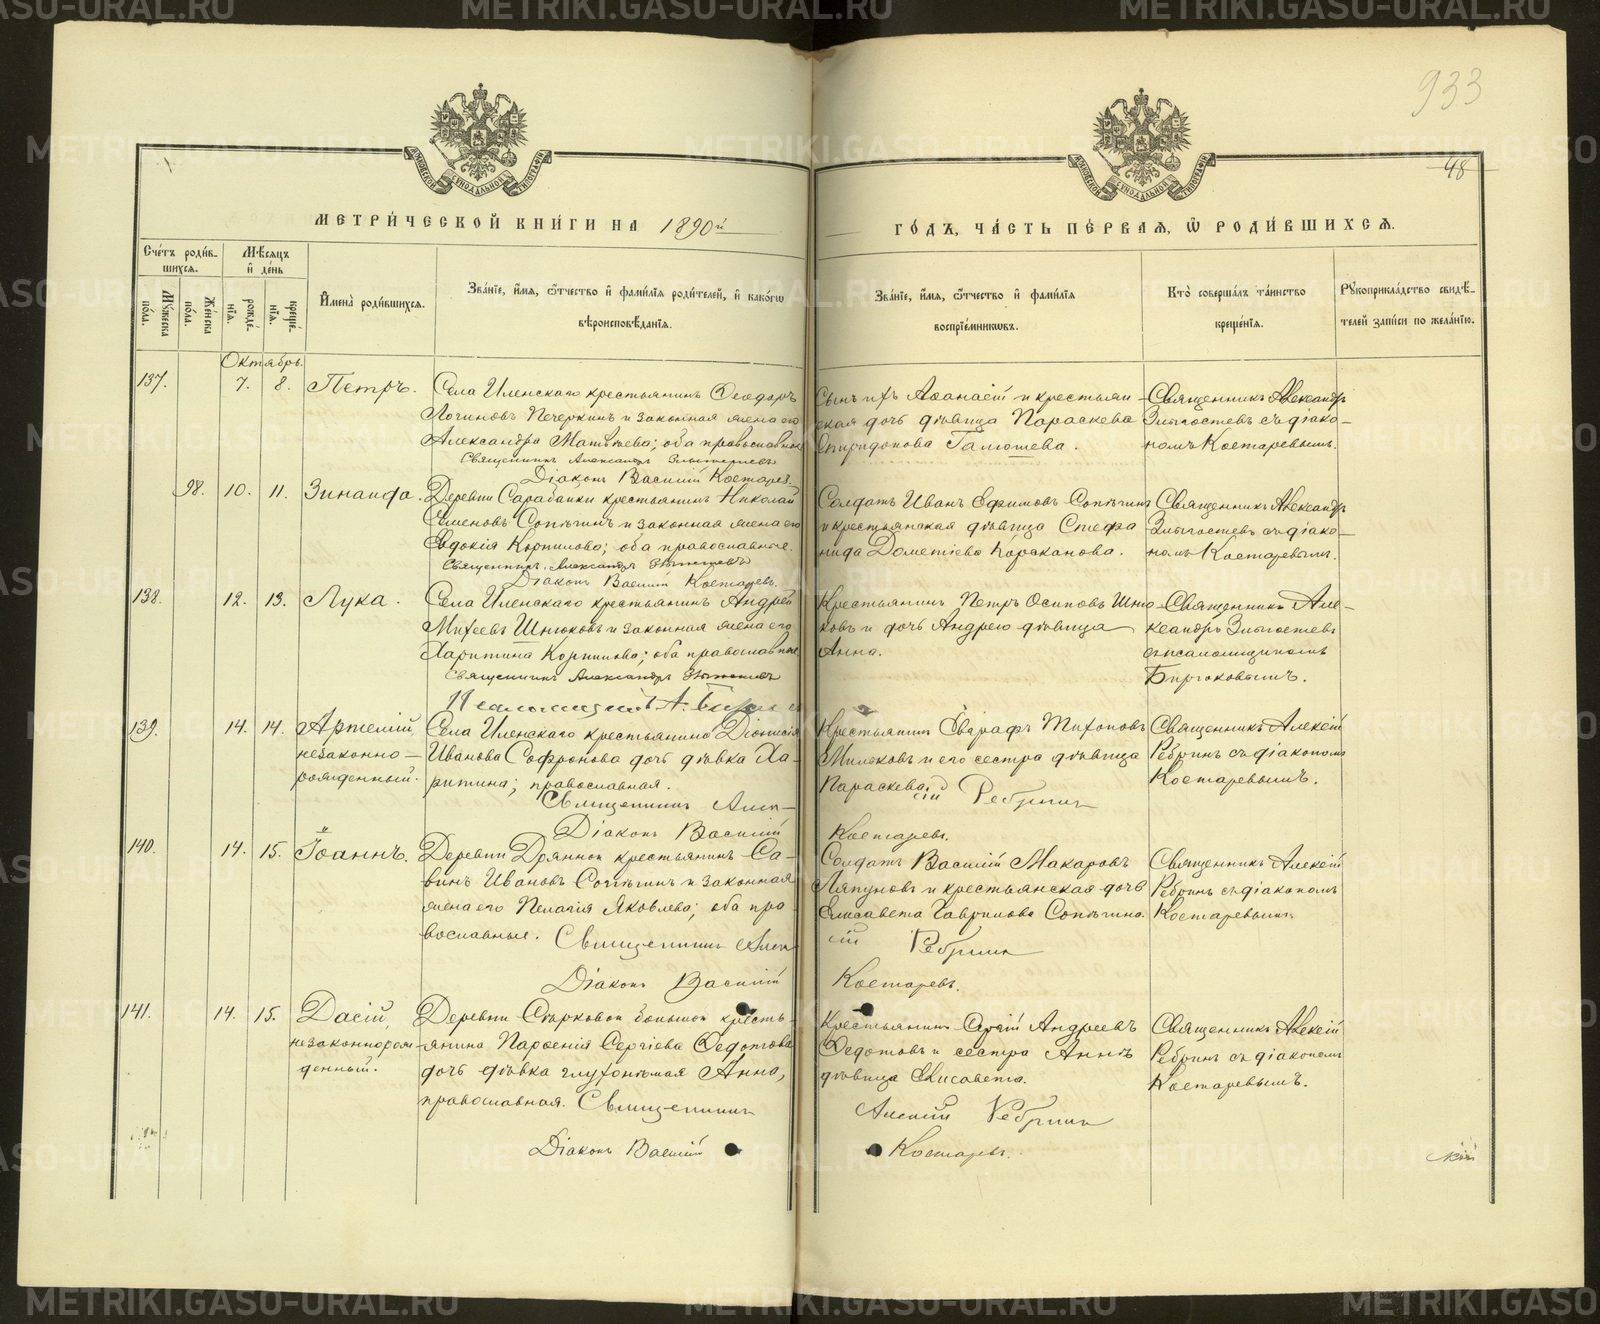 METRIKI.GASO-URAL.RU
933
48
МЕТРИ́ЧЕСКОЙ КНИ́ГИ НА 1890й
ГО́ДЪ, ЧА́СТЬ ПЕ́РВАѦ, Ѡ҆ РОДИ́ВШИХСѦ.
Сче́тъ роди́вшихсѧ.
Мꙋ́жеска по́ла.
Же́нска по́ла.
Мѣ́сѧцъ и҆ де́нь
рожде́нїѧ.
креще́нїѧ.
И҆мена̀ роди́вшихсѧ.
Зва́нїе, и҆́мѧ, ѻ҆́тчество и҆ фами́лїѧ роди́телей, и҆ како́гѡ
вѣроисповѣ́данїѧ.
Зва́нїе, и҆́мѧ, ѻ҆́тчество и҆ фами́лїѧ
воспрїе́мникѡвъ.
Кто̀ соверша́лъ та́инство
креще́нїѧ.
Рꙋкоприкла́дство свидѣ́телей за́писи по жела́нїю.
Октябрь.
137. 7. 8. Петръ.
Села Иленскаго крестьянинъ Ѳеодоръ
Логиновъ Печеркинъ и законная жена его
Александра Матвѣева; оба православные
Священникъ Александръ
Діаконъ Василій Костаревъ
Сынъ ихъ Аѳанасій и крестьян-
ская дочь дѣвица Параскева
Спиридонова Галюшева.
Священникъ Александръ
съ діако-
номъ Костаревымъ.
98. 10. 11. Зинаида.
Деревни Сарабаики крестьянинъ Николай
Семеновъ Сопѣгинъ и законная жена его
Евдокія Корнилова; оба православные.
Священникъ Александръ
Діаконъ Василій Костаревъ.
Солдатъ Иванъ Ефимовъ Сопѣгинъ
и крестьянская дѣвица Стефа
нида Дометіева Кораканова.
Священникъ Александръ
съ діако-
номъ Костаревымъ.
138. 12. 13. Лука.
Села Иленскаго крестьянинъ Андрей
Михеевъ Шнюковъ и законная жена его
Харитина Корнилова; оба православные
Священникъ Александръ
Псаломщикъ А.
Крестьянинъ Петръ Осиповъ Шню-
ковъ и дочь Андрею дѣвица
Анна.
Священникъ Але-
ксандръ
съ псаломщикомъ
Бирюковымъ.
139. 14. 14. Артемій,
незаконно-
рожденный.
Села Иленскаго крестьянина Діонисія
Иванова Софронова дочь дѣвка Ха-
ритина; православная.
Священникъ Алек-
сій Ребринъ
Діаконъ Василій
Костаревъ.
Крестьянинъ Евграфъ Тихоновъ
Милековъ и его сестра дѣвица
Параскева.
Священникъ Алексій
Ребринъ съ діакономъ
Костаревымъ.
140. 14. 15. Іоаннъ.
Деревни Дрянной крестьянинъ Са-
винъ Ивановъ Сопѣгинъ и законная
жена его Пелагія Яковлева; оба пра-
вославные. Священникъ Алек-
сій Ребринъ
Діаконъ Василій
Костаревъ.
Солдатъ Василій Макаровъ
Ляпуновъ и крестьянская дочь
Елисавета Гаврилова Сопѣгина.
Священникъ Алексій
Ребринъ съ діакономъ
Костаревымъ.
141. 14. 15. Дасій,
незаконнорож-
денный.
Деревни Старковой большой кресть-
янина Парѳенія Сергіева Ѳедотова
дочь дѣвка глухонѣмая Анна,
православная. Священникъ
Алексій Ребринъ
Діаконъ Василій
Костаревъ.
Крестьянинъ Сергій Андреевъ
Ѳедотовъ и сестра Аннѣ
дѣвица Елисавета.
Священникъ Алексій
Ребринъ съ діакономъ
Костаревымъ.